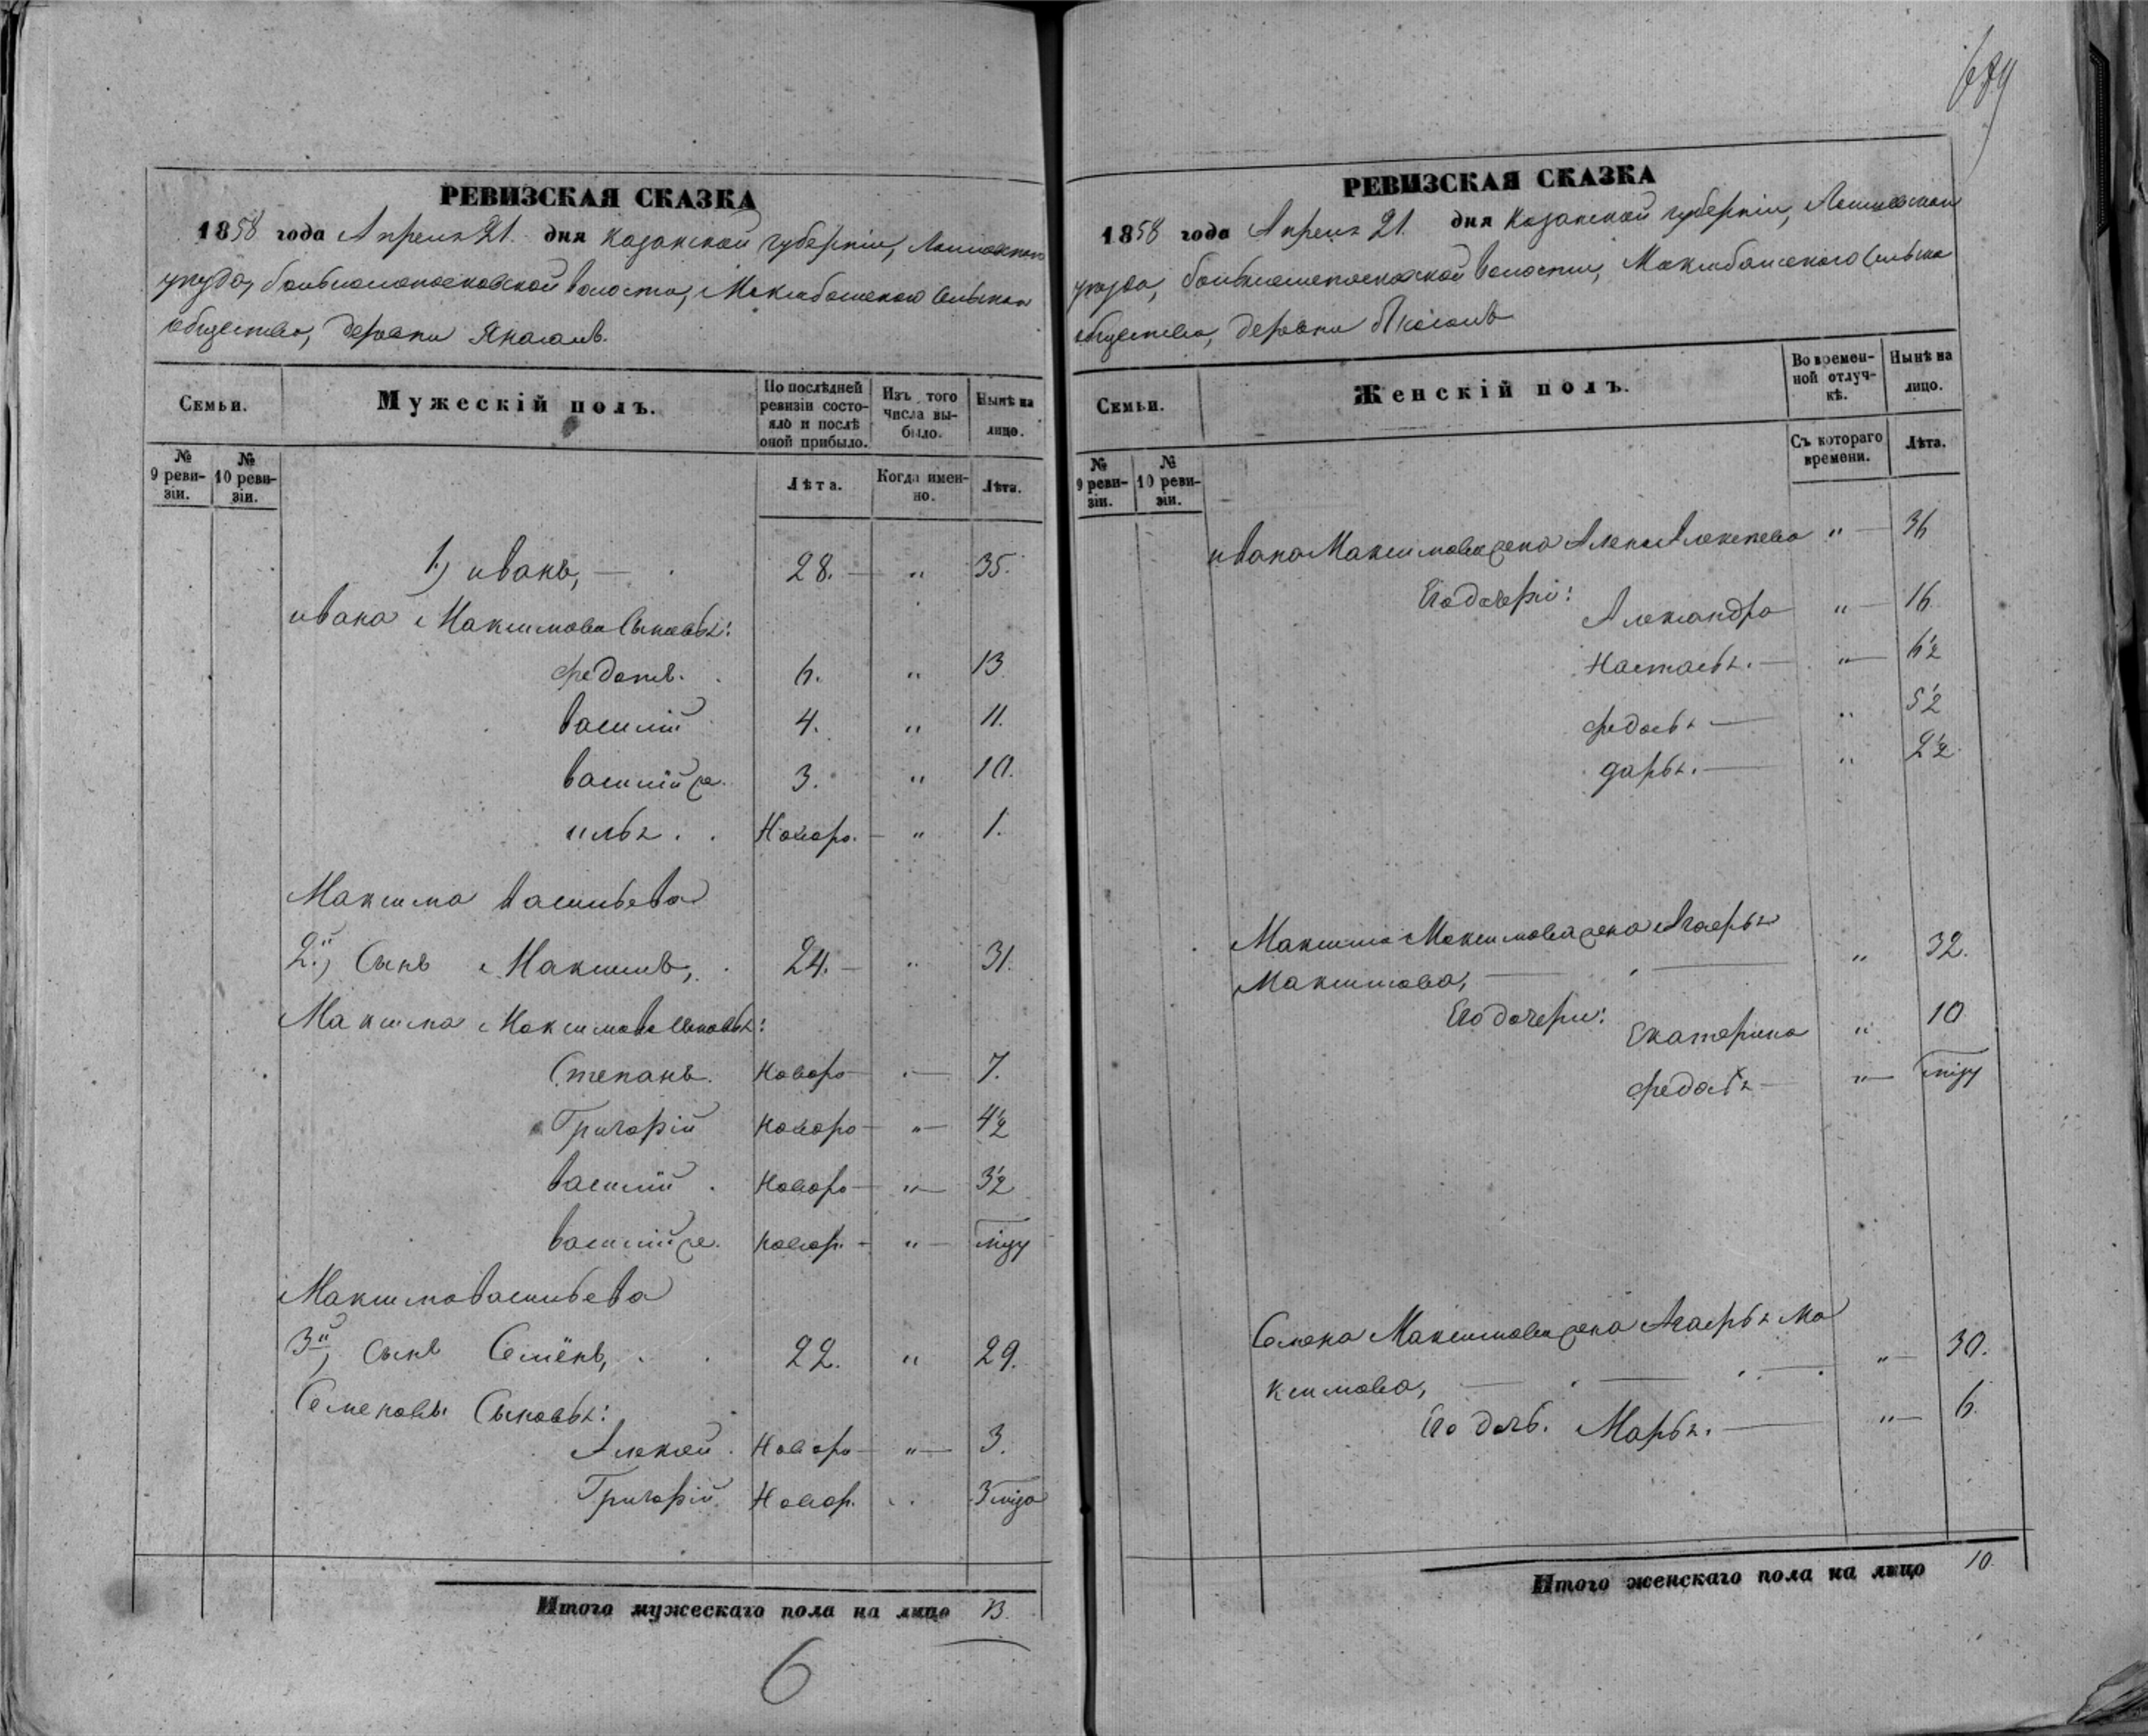 РЕВИЗСКАЯ СКАЗКА
1858 года Апреля 21. дня Казанской губерніи,
уезда, волости, сельскаго
общества, деревни
Семьи.
Мужескій полъ.
По послѣдней ревизіи состояло и послѣ оной прибыло.
Изъ того числа выбыло.
Нынѣ на лицо.
№ 9 ревизіи.
№ 10 ревизіи.
Лѣта.
Когда именно.
Лѣта.
1.) иванъ, — 28. — " 35.
ивана Максимова сыновья:
федотъ. 6. " 13
василій 4. " 11.
василій же. 3. " 10.
илья . . Новоро. — " 1.
Максима васильева
2й.) Сынъ Максимъ, 24. — " 31.
Максима Максимова сыновья:
Степанъ. новоро — 7.
Григорій новоро — " — 4½
василій . новоро — " — 3½
василій же. новор. - " —
Максима васильева
3й) сынъ Семёнъ, . . 22. " 29.
Семеновы Сыновья:
Алексей . Новоро — " — 3.
Григорій. Новор. "
Итого мужескаго пола на лицо 13.
6
689
РЕВИЗСКАЯ СКАЗКА
1858 года Апреля 21. дня Казанской губерніи,
уезда, волости, сельскаго
общества, деревни
Семьи.
Женскій полъ.
Во временной отлучкѣ.
Нынѣ на лицо.
№ 9 ревизіи.
№ 10 ревизіи.
Съ котораго времени.
Лѣта.
ивана Максимова жена Алена Алексеева " — 36
Его дочери:
Александра " — 16
Настасья. — " — 6½
федосья — " 5½
дарья. — " 2½
Максима Максимова жена Агафья
Максимова, — " 32.
Его дочери:
Екатерина " 10
федосья — " —
Семена Максимова жена Агафья Ма
ксимова, — " — 30.
Его дочь. Марья. — " — 6.
Итого женскаго пола на лицо 10.